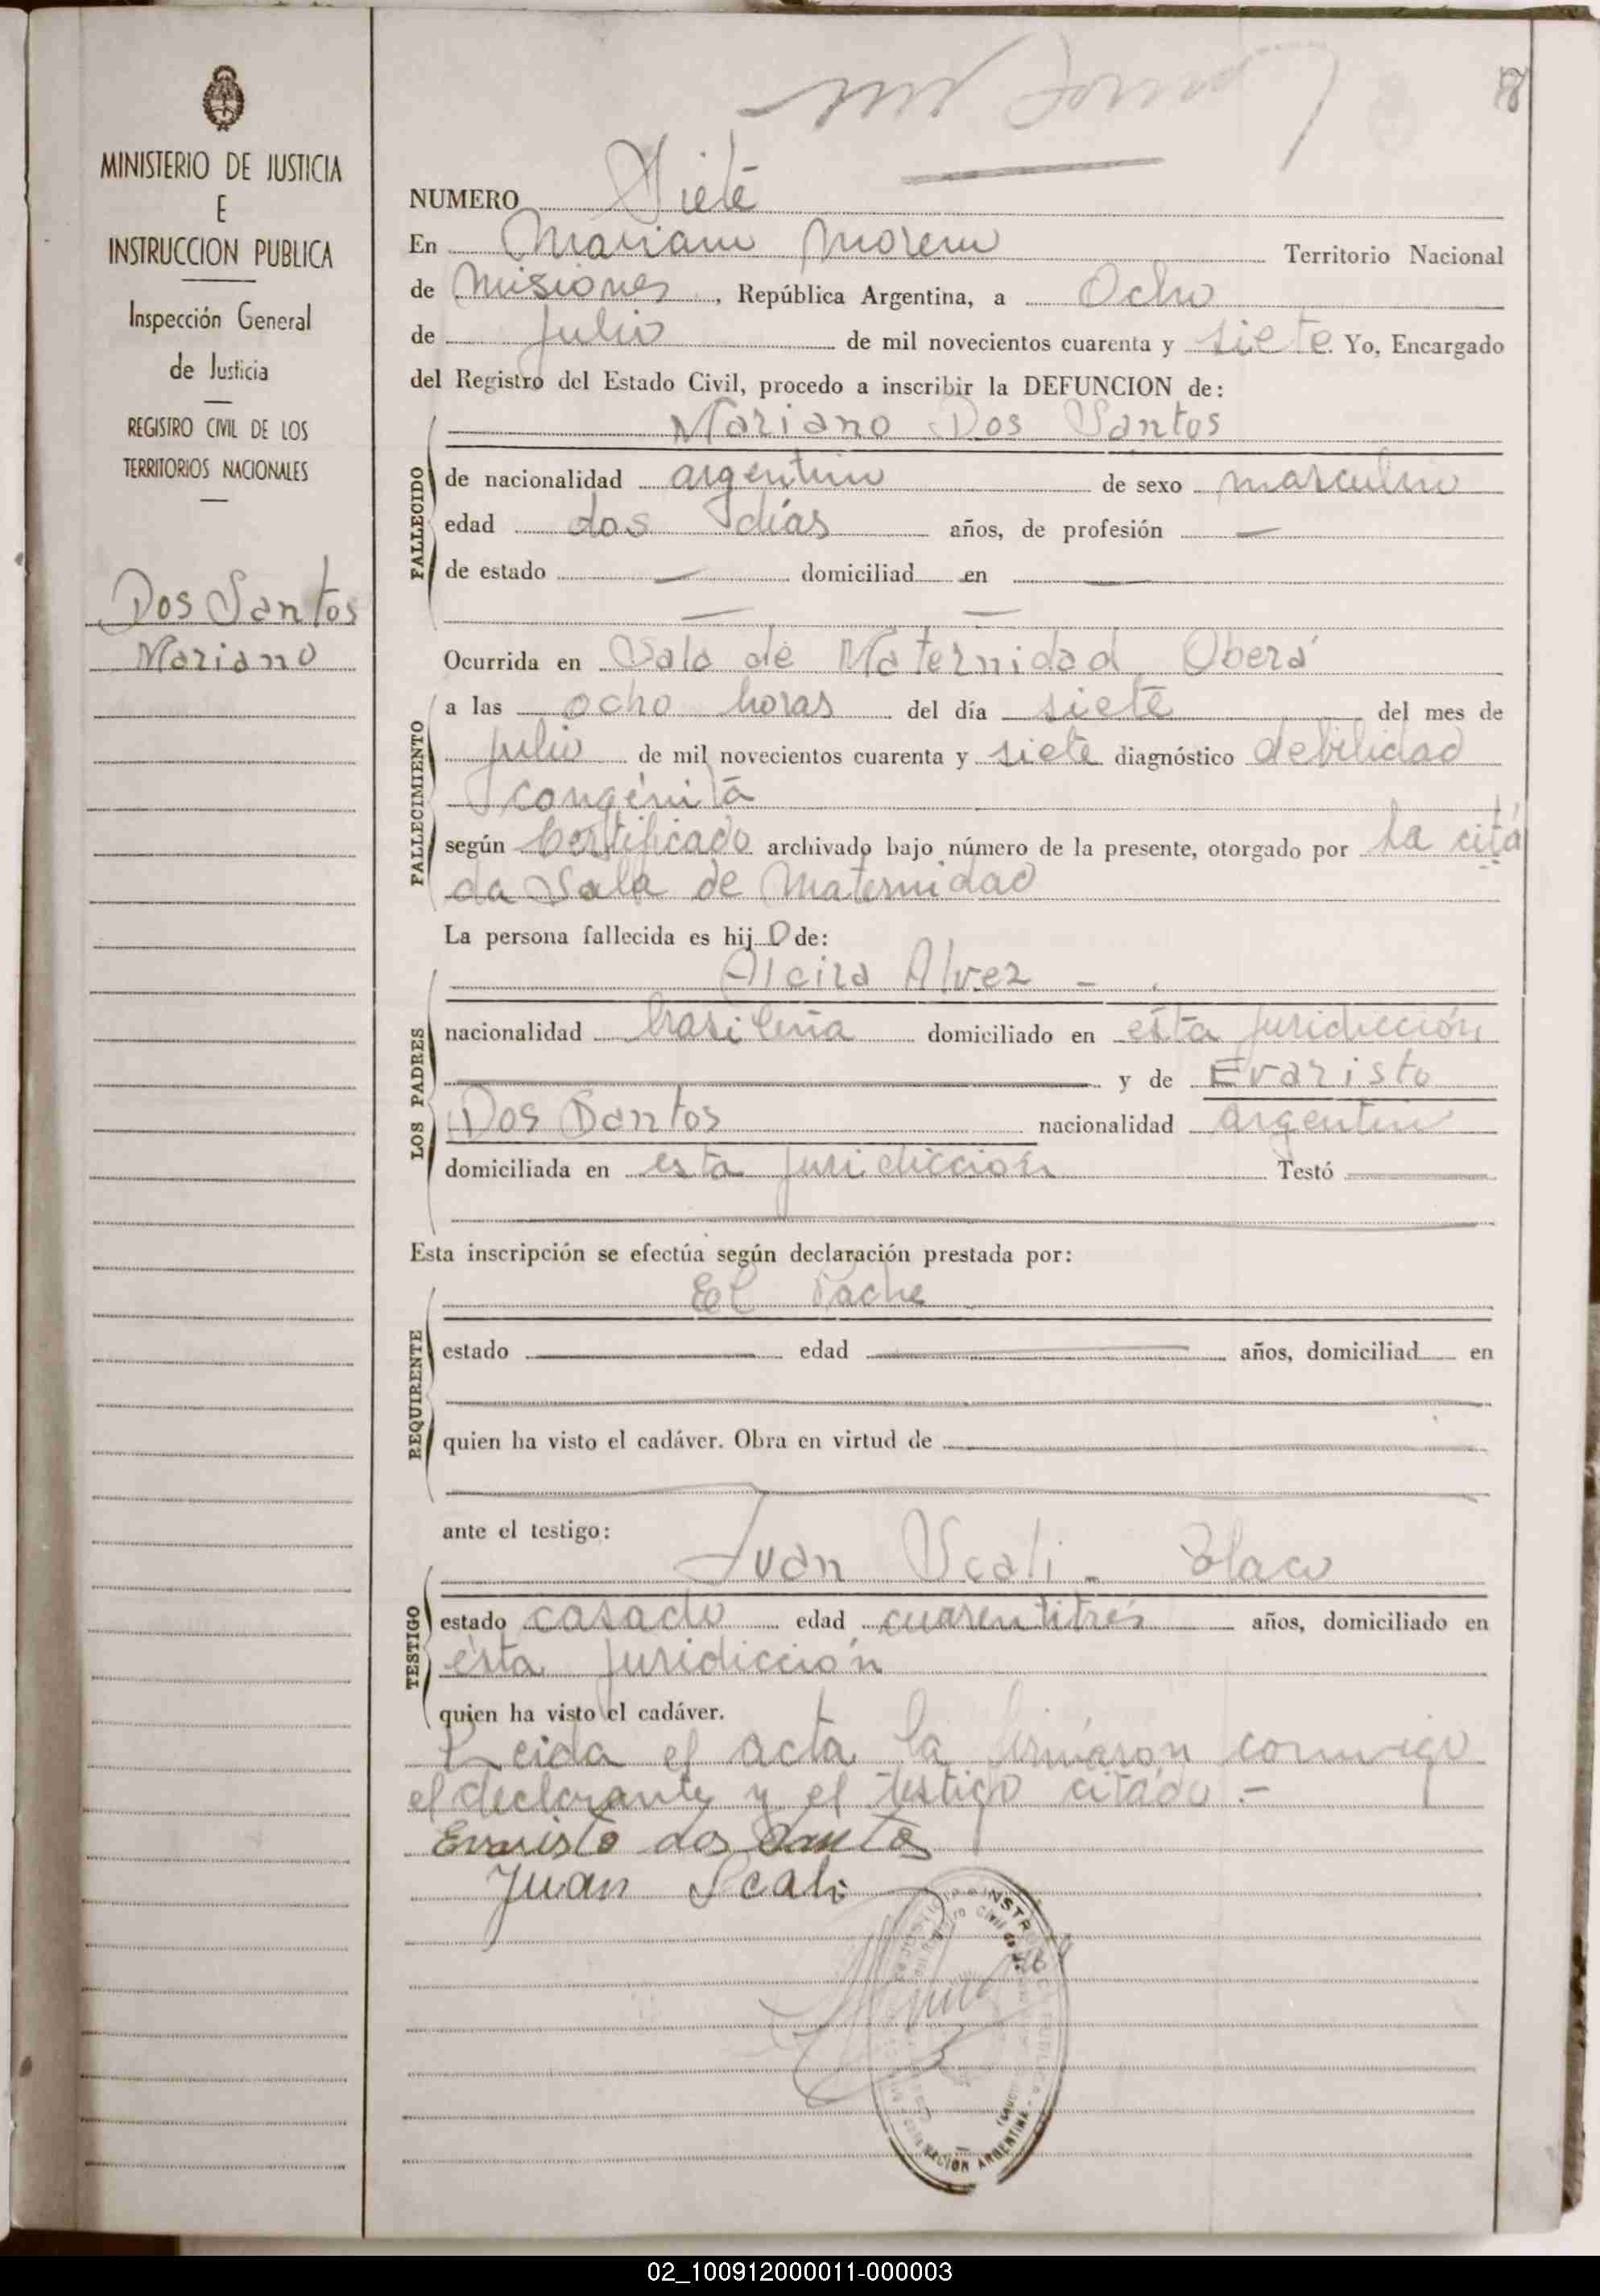 8
MINISTERIO DE JUSTICIA
E
INSTRUCCION PUBLICA
Inspección General
de Justicia
REGISTRO CIVIL DE LOS
TERRITORIOS NACIONALES
Dos Santos
Mariano
NUMERO Siete
En Mariano Moreno Territorio Nacional
de Misiones, República Argentina, a Ocho
de julio de mil novecientos cuarenta y siete. Yo, Encargado
del Registro del Estado Civil, procedo a inscribir la DEFUNCION de:
Mariano Dos Santos
FALLECIDO
de nacionalidad argentino de sexo masculino
edad dos días años, de profesión —
de estado — domiciliad en —
— —
Ocurrida en Sala de Maternidad Oberá
FALLECIMIENTO
a las ocho horas del día siete del mes de
julio de mil novecientos cuarenta y siete diagnóstico debilidad
congénita
según Certificado archivado bajo número de la presente, otorgado por la cita
da Sala de Maternidad
La persona fallecida es hijo de:
LOS PADRES
Alcira Alvez -
nacionalidad brasileña domiciliado en ésta juridicción
y de Evaristo
Dos Santos nacionalidad argentino
domiciliada en esta juridicción Testó
Esta inscripción se efectúa según declaración prestada por:
REQUIRENTE
El Padre
estado edad años, domiciliad en
quien ha visto el cadáver. Obra en virtud de
ante el testigo:
TESTIGO
Juan Scali -
estado casado edad cuarentitrés años, domiciliado en
ésta juridicción
quien ha visto el cadáver.
Leida el acta la firmaron conmigo
el declarante y el testigo citado.-
Evaristo dos Santos
Juan Scali
NACION ARGENTINA
02_100912000011-000003